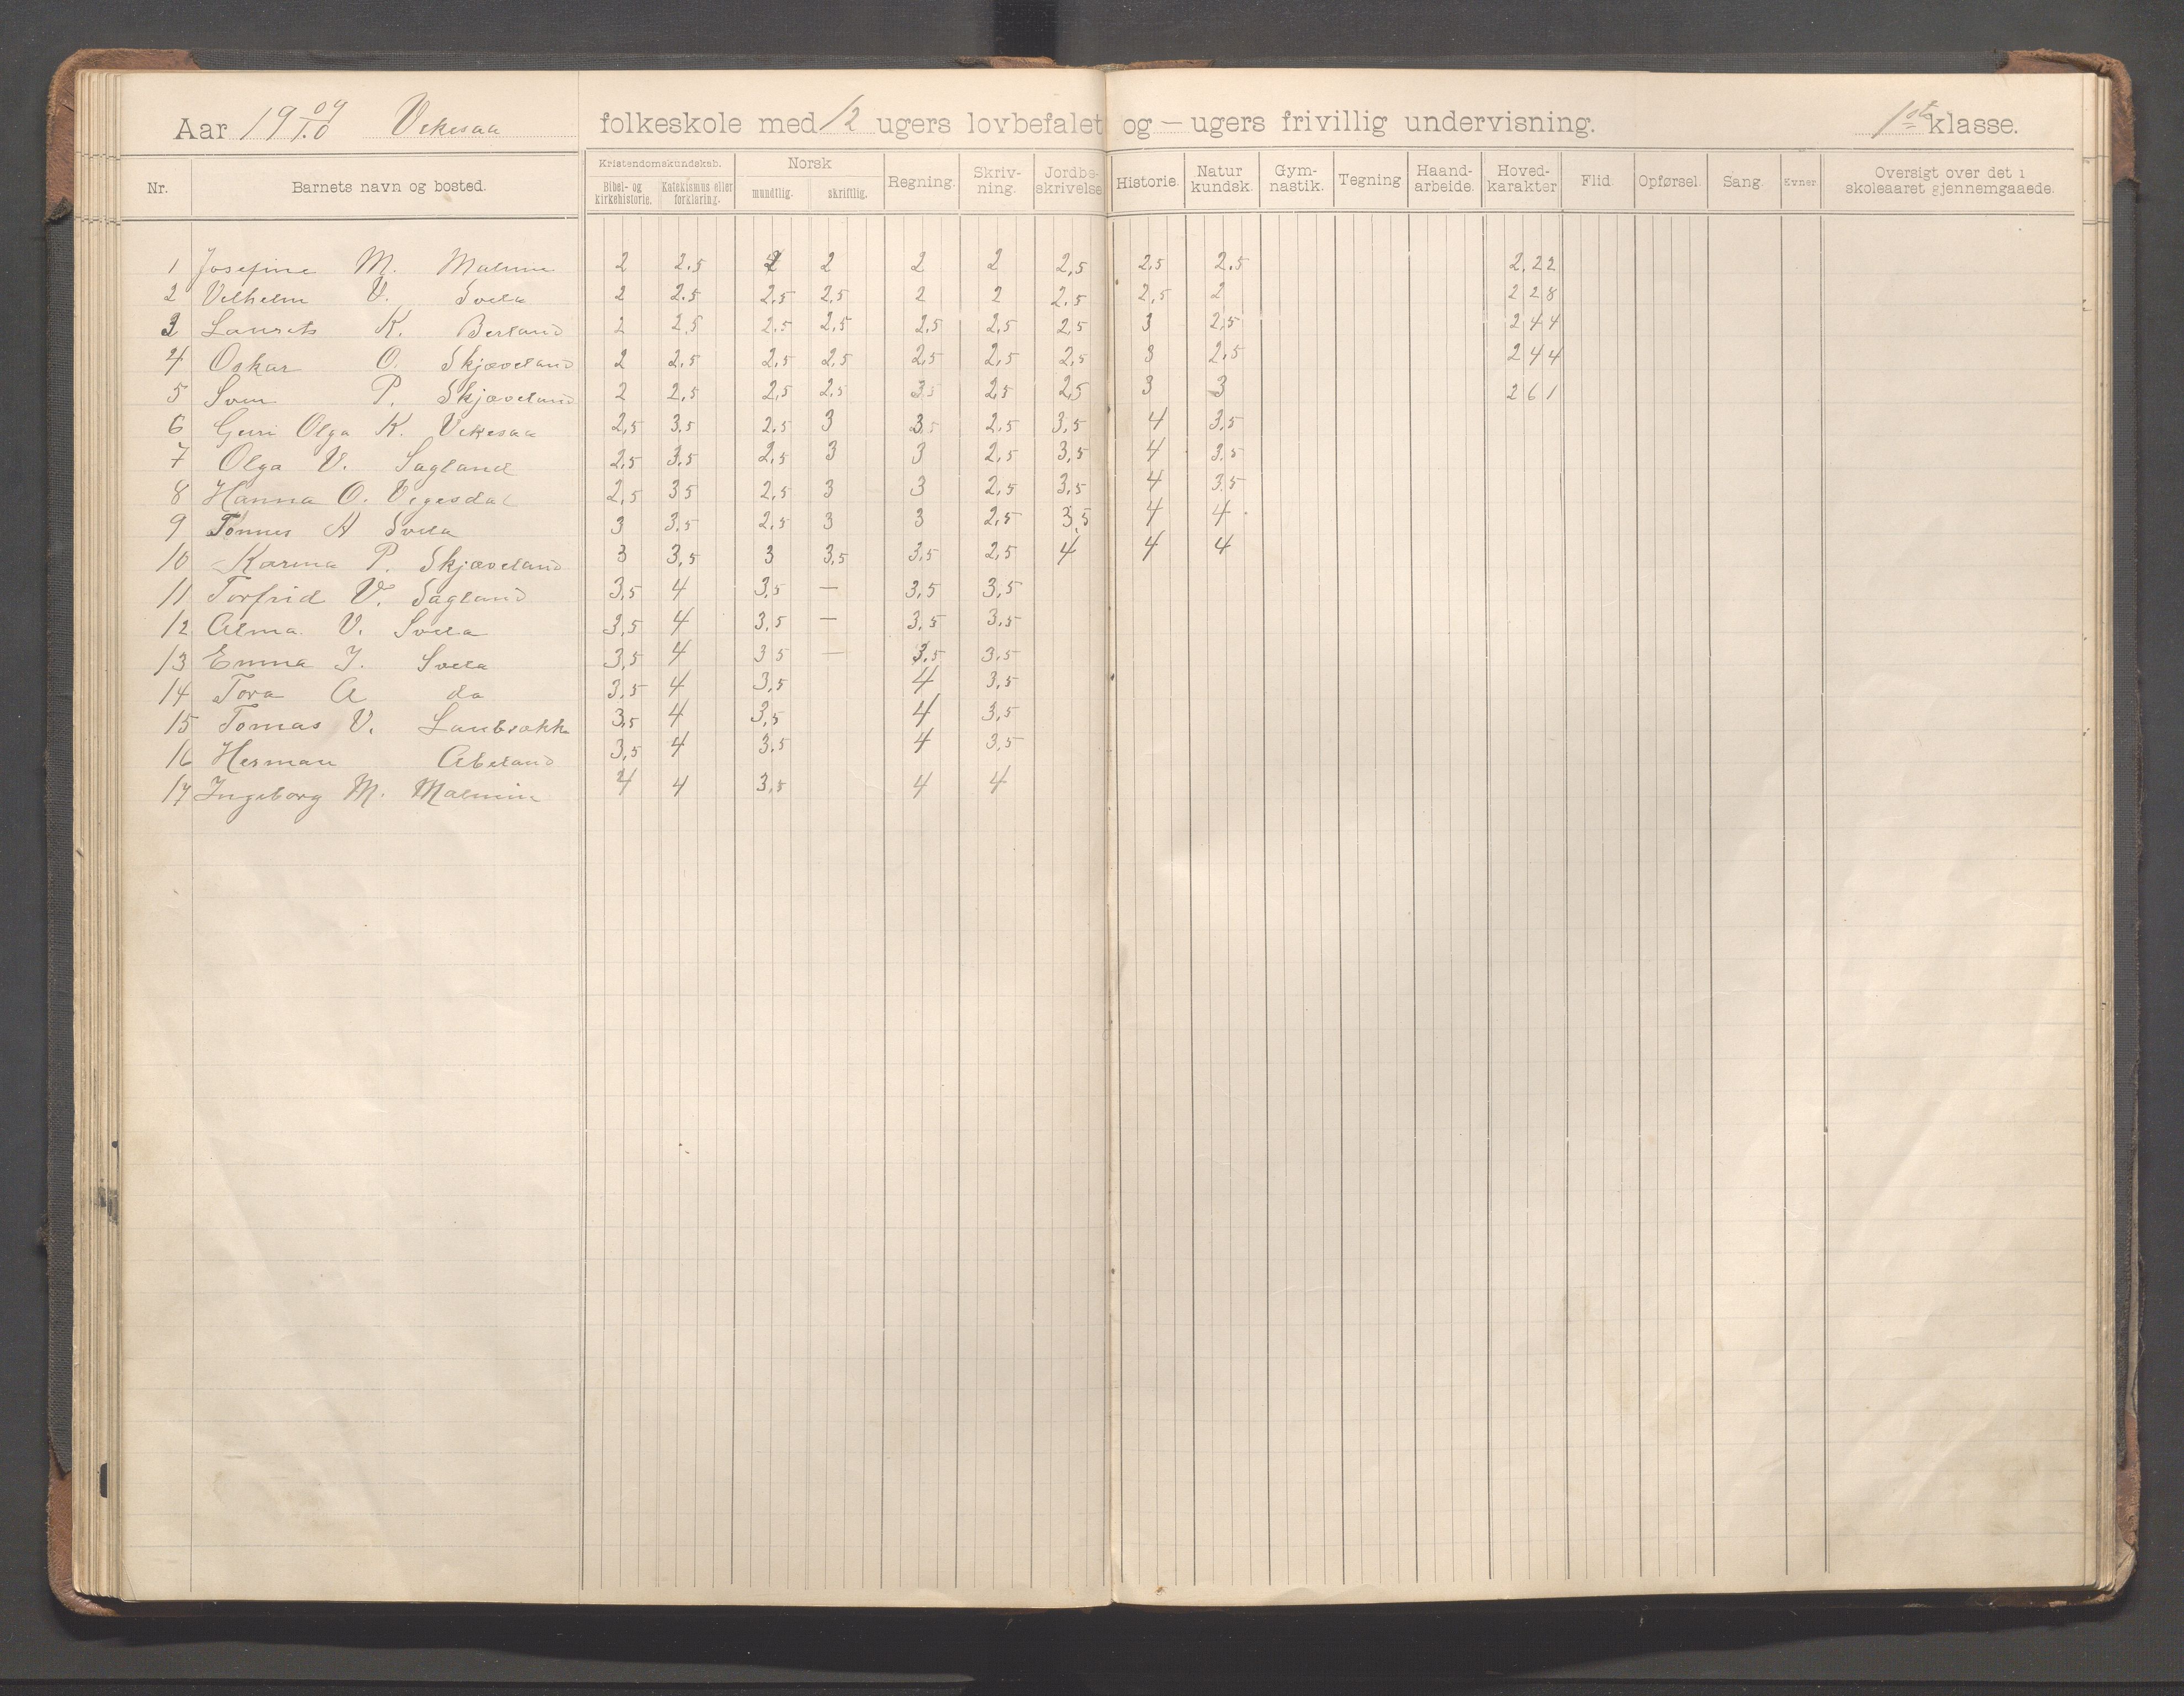 Aar 19 09/10 Vikesaa folkeskole med 12 ugers lovbefalet og — ugers frivillig undervisning. 1ste klasse.
Nr. Barnets navn og bosted. Kristendomskundskab. Bibel- og kirkehistorie. Katekismus eller forklaring. Norsk mundtlig. skriftlig. Regning. Skriv-ning. Jordbe-skrivelse Historie. Natur kundsk. Gym-nastik. Tegning Haand-arbeide. Hoved-karakter Flid. Opførsel. Sang. Evner. Oversigt over det i skoleaaret gjennemgaaede.
1 Josefine M. Malmin 2 2.5 2 2 2 2 2,5 2,5 2.5 2.22
2 Vilhelm V. Svela 2 2.5 2,5 2,5 2 2 2.5 2,5 2 2 28
3 Laurits K. Berland 2 2,5 2,5 2,5 2,5 2,5 2,5 3 2,5 2 44
4 Oskar O. Skjæveland 2 2,5 2,5 2,5 2,5 2,5 2,5 3 2,5 2 44
5 Sven P. Skjæveland 2 2,5 2,5 2,5 3 5 2,5 2,5 3 3 2 61
6 Guri Olga K. Vikesaa 2,5 3,5 2,5 3 3 5 2,5 3,5 4 3,5
7 Olga V. Sagland 2,5 3,5 2,5 3 3 2,5 3,5 4 3,5
8 Hanna O. Vegesdal 2,5 3 5 2,5 3 3 2,5 3,5 4 3,5
9 Tønnes A Svela 3 3,5 2,5 3 3 2,5 3,5 4 4
10 Karina P. Skjæveland 3 3,5 3 3,5 3,5 2,5 4 4 4
11 Torfrid V. Sagland 3,5 4 3,5 — 3,5 3,5
12 Alma V. Svela 3,5 4 3,5 — 3,5 3,5
13 Emma J. Svela 3,5 4 3 5 — 3,5 3,5
14 Tora A do 3,5 4 3,5 4 3,5
15 Tomas V. 3,5 4 3,5 4 3,5
16 Herman Abeland 3,5 4 3,5 4 3,5
17 Ingeborg M. Malmin 4 4 3,5 4 4